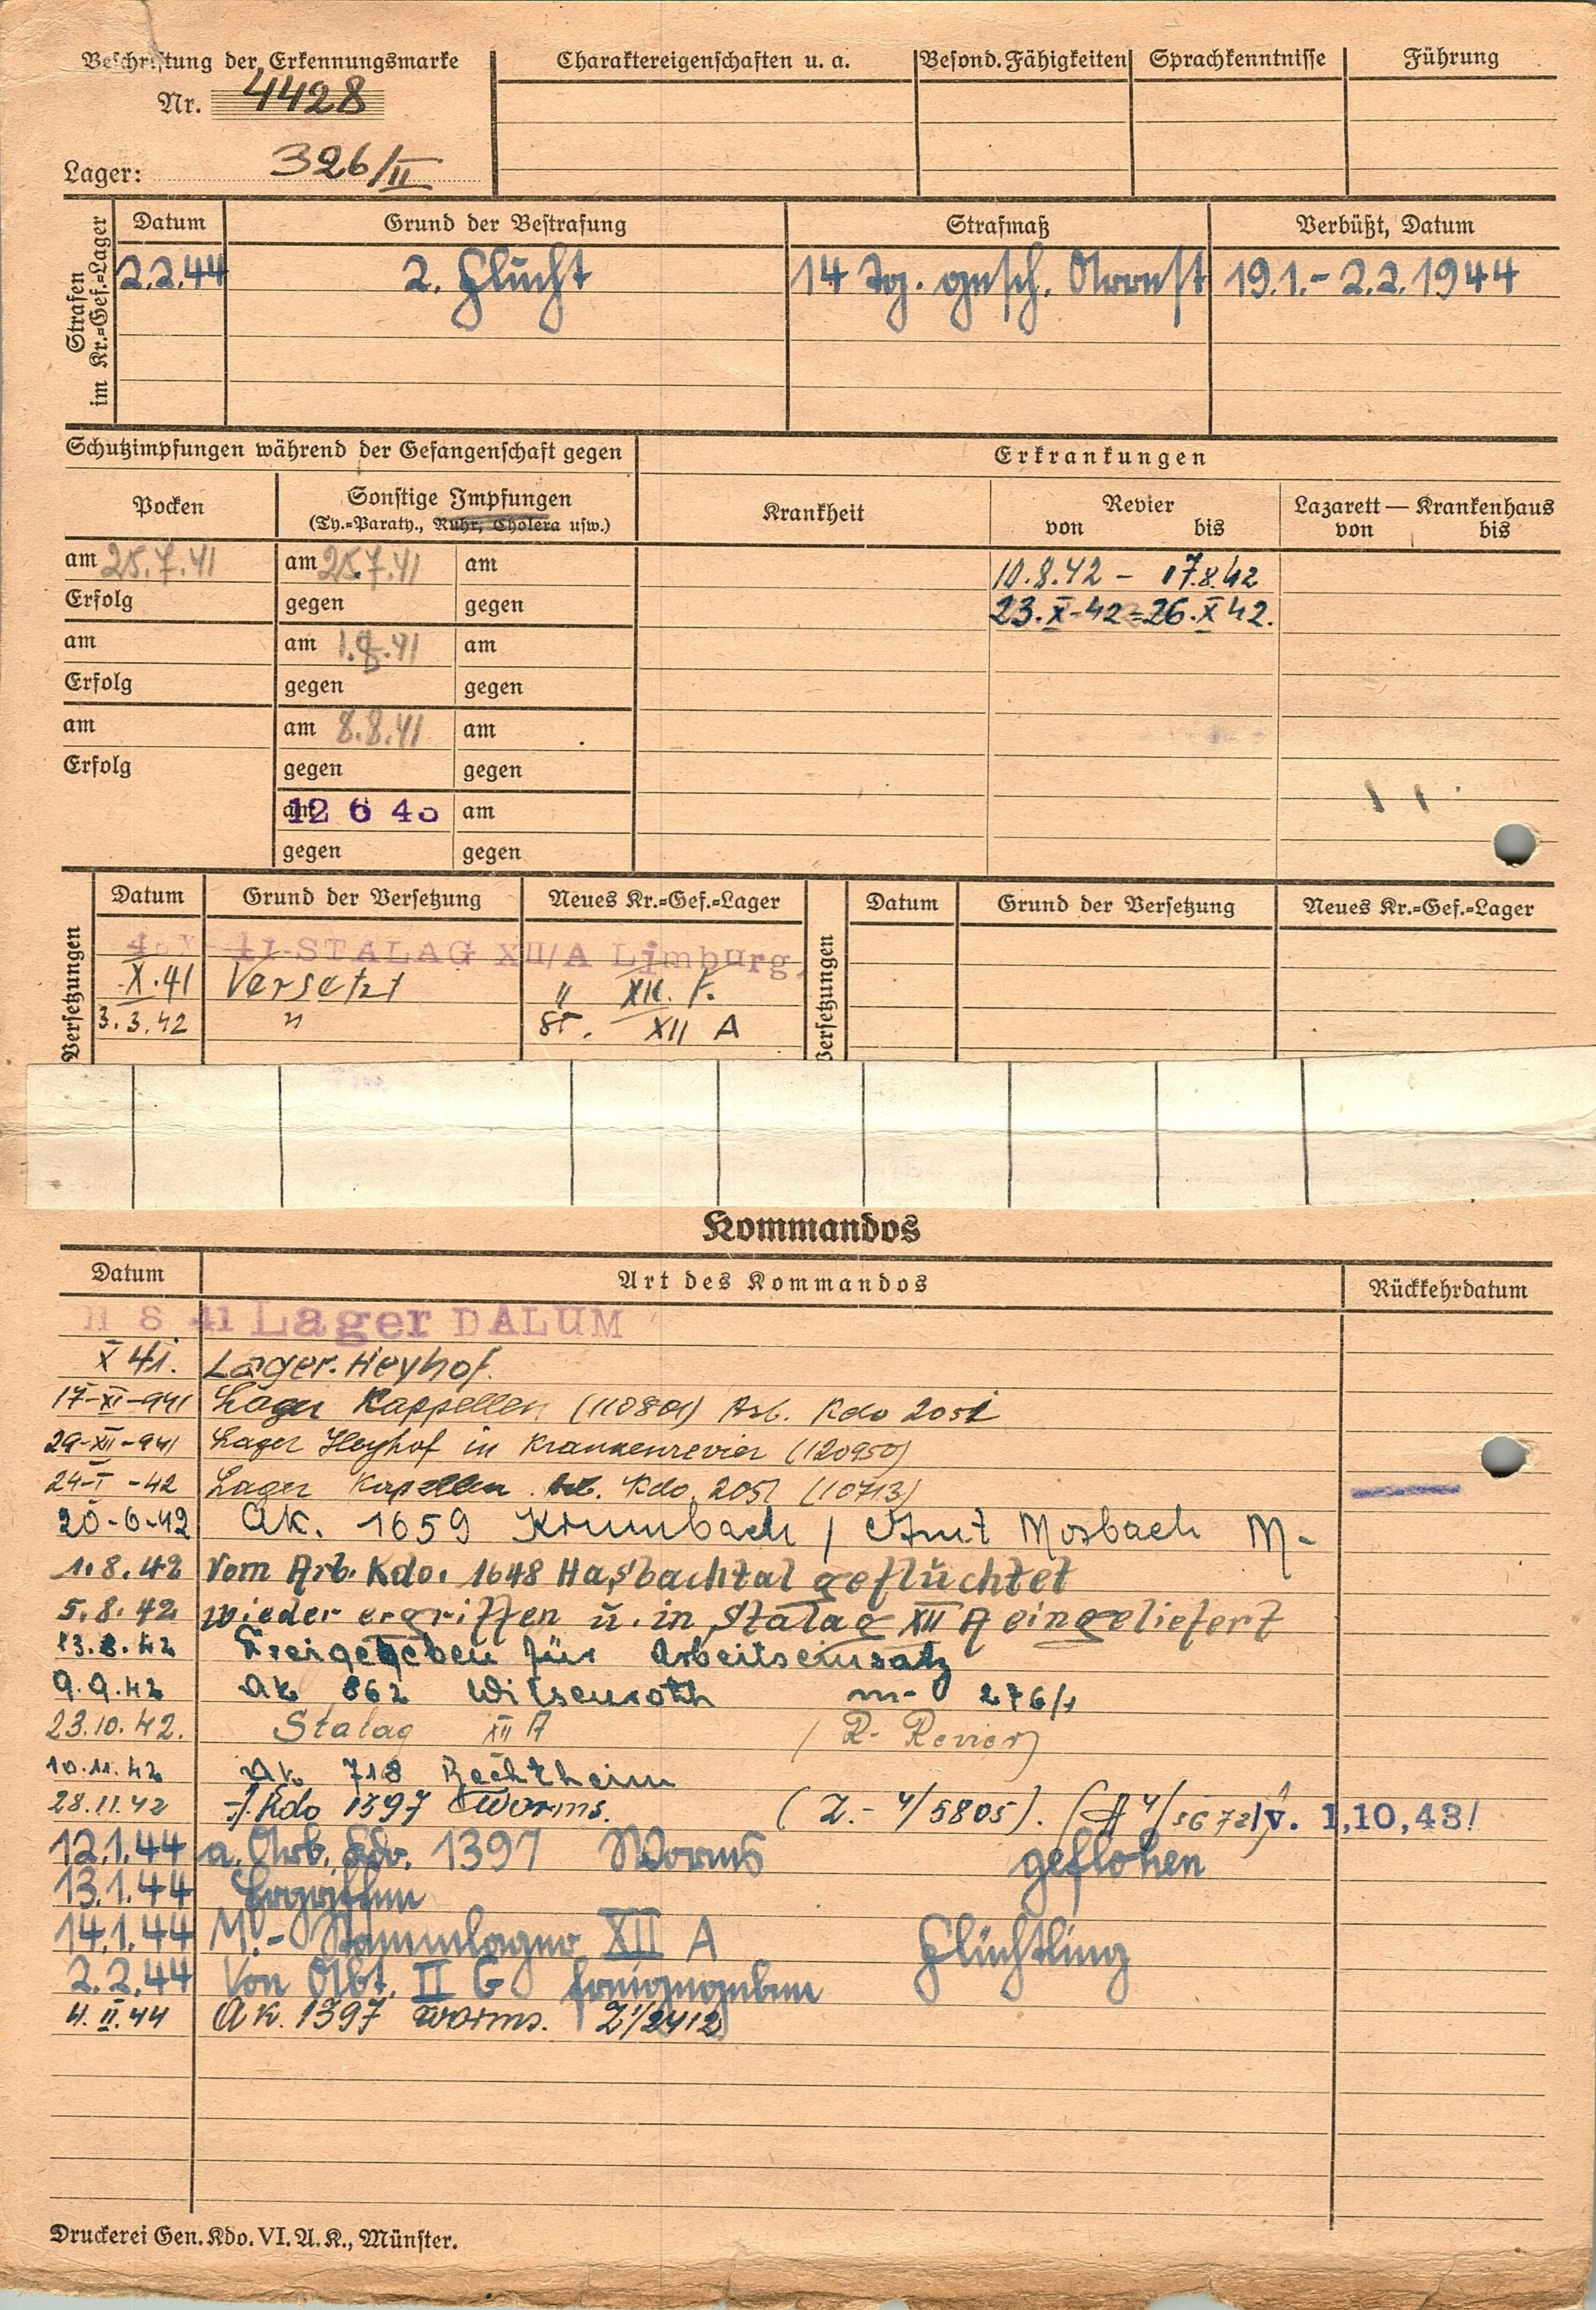 Beschriftung der Erkennungsmarke
Nr. 4428
Lager: 326/II
Charaktereigenschaften u. a.
Besond. Fähigkeiten
Sprachkenntnisse
Führung
Strafen im Kr.=Gef.=Lager
Datum Grund der Bestrafung Strafmaß Verbüßt, Datum
2.2.44 2. Flucht 14 Tg. gesch. Arrest 19.1.- 2.2.1944
Schutzimpfungen während der Gefangenschaft gegen
Erkrankungen
Pocken
Sonstige Impfungen
(Ty.=Paraty., Ruhr, Cholera usw.)
Krankheit
Revier
von bis
Lazarett — Krankenhaus
von bis
am 25.7.41 am 25.7.41 am
10.8.42 - 17.8.42
Erfolg gegen gegen
23.X-42-26.X 42.
am am 1.8.41 am
Erfolg gegen gegen
am am 8.8.41 am
Erfolg gegen gegen
am 12 6 43 am
gegen gegen
Versetzungen
Datum Grund der Versetzung Neues Kr.=Gef.=Lager
Versetzungen
Datum Grund der Versetzung Neues Kr.=Gef.=Lager
41-STALAG XII/A Limburg,
X.41 Versetzt " XII. F.
3.3.42 " St. XII A
Kommandos
Datum Art des Kommandos Rückkehrdatum
8 41 Lager DALUM
X 41. Lager. Heyhof.
17-XI-941 Lager Kappellen (110801) Arb. Kdo 2051
29-XII-941 Lager Heyhof in Krankenrevier (120950)
24-I-42 Lager Kapellen Arb. Kdo 2051 (10713)
20-6-42 AK. 1659 Krumbach / Amt Mosbach M-
1.8.42 Vom Arb. Kdo. 1648 Hasbachtal geflüchtet
5.8.42 wieder ergriffen u. in Stalag XII A eingeliefert
13.8.42 Freigegeben für Arbeitseinsatz
9.9.42 AK 862 Wilsenroth m- 276/1
23.10.42. Stalag XII A (R- Revier)
10.11.42 AK 718 Bechtheim
28.11.42 A.Kdo 1397 Worms. (Z.- 4/5805). (A 4/5672) v. 1,10,43!
12.1.44 a. Arb. Kdo. 1397 Worms geflohen
13.1.44 Ergriffen
14.1.44 M.- Stammlager XII A Flüchtling
2.2.44 Von Abt. II G freigegeben
4.II.44 AK. 1397 Worms. Z1/2412
Druckerei Gen. Kdo. VI. A. K., Münster.